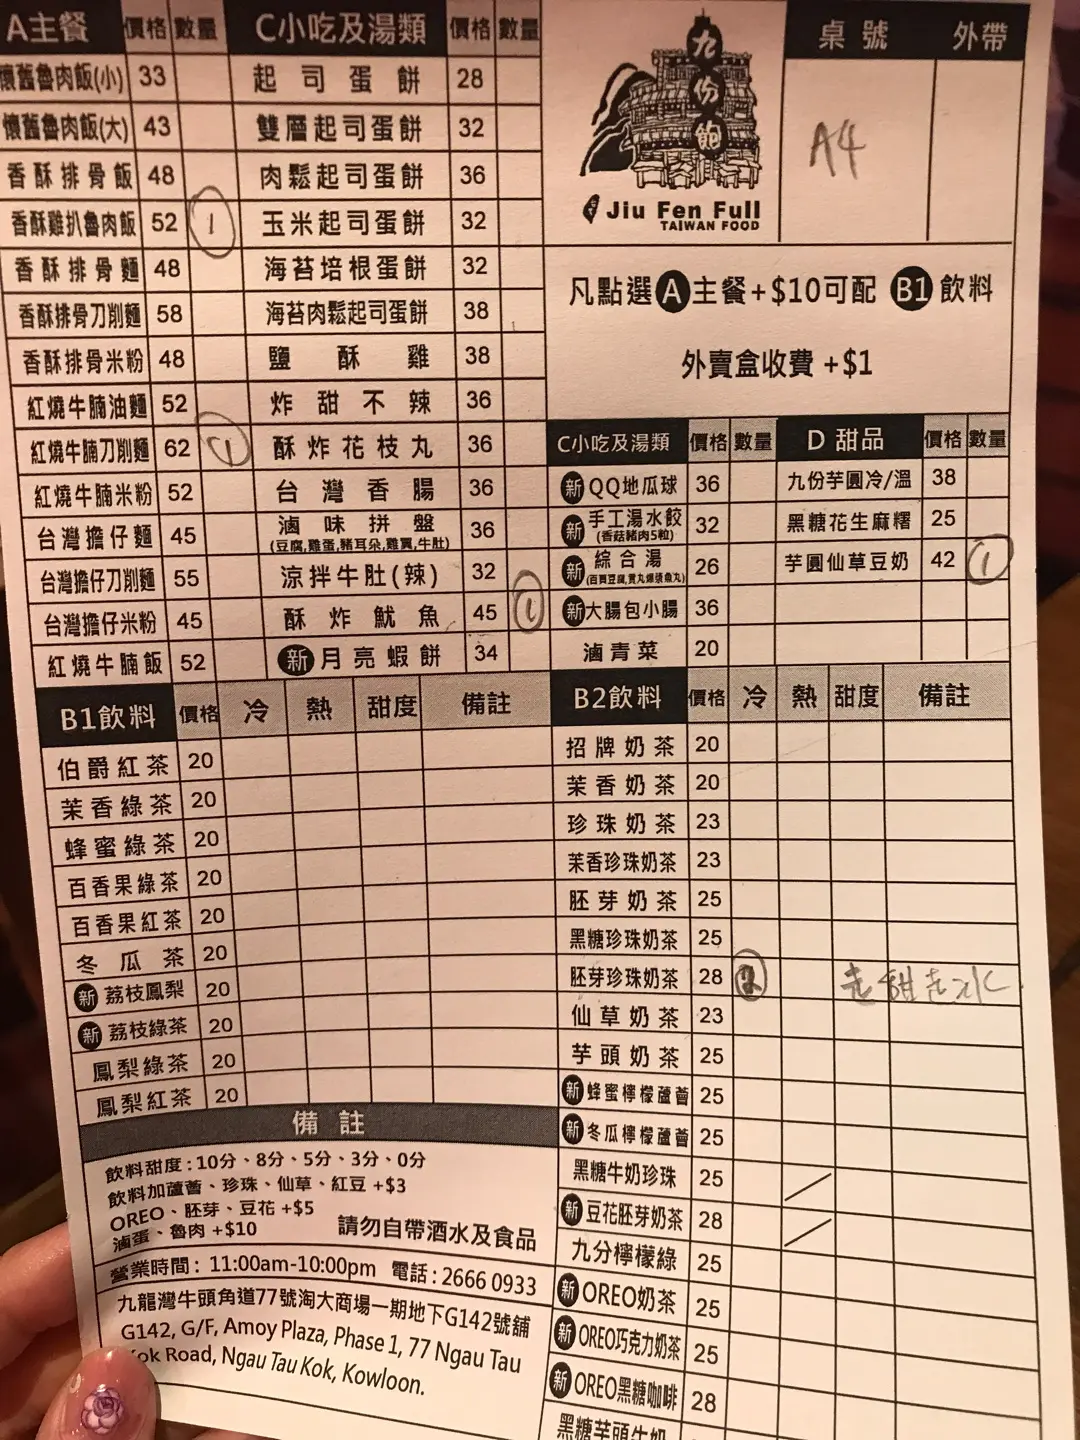 A主餐 價格 數量
懷舊魯肉飯(小) 33
懷舊魯肉飯(大) 43
香酥排骨飯 48
香酥雞扒魯肉飯 52 1
香酥排骨麵 48
香酥排骨刀削麵 58
香酥排骨米粉 48
紅燒牛腩油麵 52
紅燒牛腩刀削麵 62 1
紅燒牛腩米粉 52
台灣擔仔麵 45
台灣擔仔刀削麵 55
台灣擔仔米粉 45
紅燒牛腩飯 52
C小吃及湯類 價格 數量
起司蛋餅 28
雙層起司蛋餅 32
肉鬆起司蛋餅 36
玉米起司蛋餅 32
海苔培根蛋餅 32
海苔肉鬆起司蛋餅 38
鹽酥雞 38
炸甜不辣 36
酥炸花枝丸 36
台灣香腸 36
滷味拼盤 36
(豆腐,雞蛋,豬耳朵,雞翼,牛肚)
涼拌牛肚(辣) 32
酥炸魷魚 45 1
新 月亮蝦餅 34
九份飽
Jiu Fen Full
TAIWAN FOOD
桌號 外帶
A4
凡點選 A 主餐+$10可配 B1 飲料
外賣盒收費+$1
C小吃及湯類 價格 數量
新 QQ地瓜球 36
新 手工湯水餃 32
(香菇豬肉5粒)
新 綜合湯 26
新 大腸包小腸 36
滷青菜 20
D 甜品 價格 數量
九份芋圓冷/溫 38
黑糖花生麻糬 25
芋圓仙草豆奶 42 1
B1飲料 價格 冷 熱 甜度 備註
伯爵紅茶 20
茉香綠茶 20
蜂蜜綠茶 20
百香果綠茶 20
百香果紅茶 20
冬瓜茶 20
新 荔枝鳳梨 20
新 荔枝綠茶 20
鳳梨綠茶 20
鳳梨紅茶 20
B2飲料 價格 冷 熱 甜度 備註
招牌奶茶 20
茉香奶茶 20
珍珠奶茶 23
茉香珍珠奶茶 23
胚芽奶茶 25
黑糖珍珠奶茶 25
胚芽珍珠奶茶 28 2 走甜走冰
仙草奶茶 23
芋頭奶茶 25
新 蜂蜜檸檬蘆薈 25
新 冬瓜檸檬蘆薈 25
黑糖牛奶珍珠 25
新 豆花胚芽奶茶 28
九分檸檬綠 25
新 OREO奶茶 25
新 OREO巧克力奶茶 25
新 OREO黑糖咖啡 28
黑糖芋頭牛奶
備註
飲料甜度:10分、8分、5分、3分、0分
飲料加蘆薈、珍珠、仙草、紅豆 +$3
OREO、胚芽、豆花 +$5
滷蛋、魯肉 +$10 請勿自帶酒水及食品
營業時間: 11:00am-10:00pm 電話: 2666 0933
九龍灣牛頭角道77號淘大商場一期地下G142號舖
G142, G/F, Amoy Plaza, Phase 1, 77 Ngau Tau
Kok Road, Ngau Tau Kok, Kowloon.